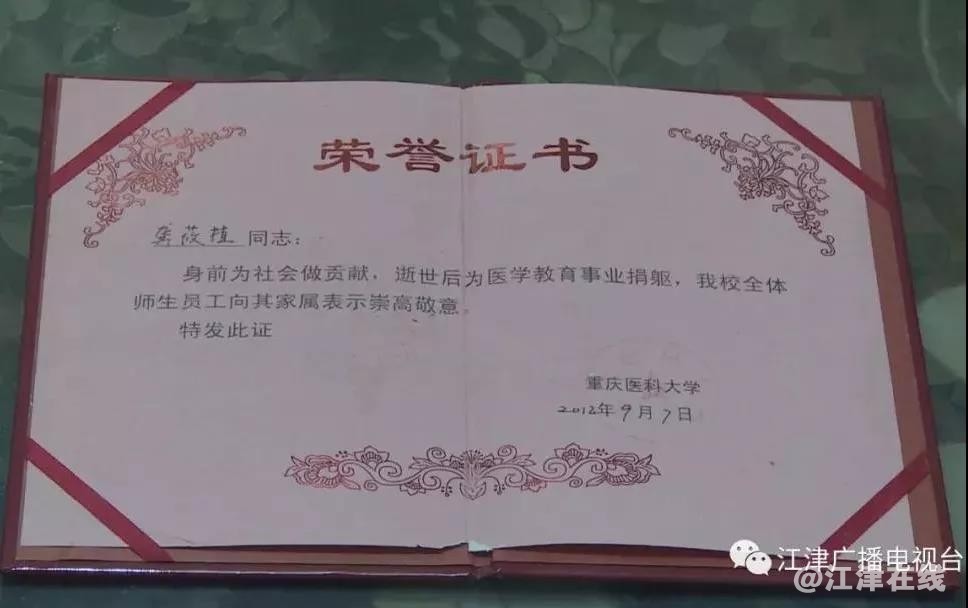 荣誉证书
筱植同志：
身前为社会做贡献，逝世后为医学教育事业捐躯，我校全体
师生员工向其家属表示崇高敬意。
特发此证
重庆医科大学
2012年9月7日
江津广播电视台
@江津在线